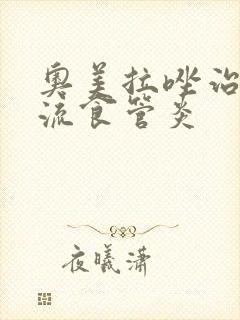 奥美拉唑治
流食管炎
夜曦潇